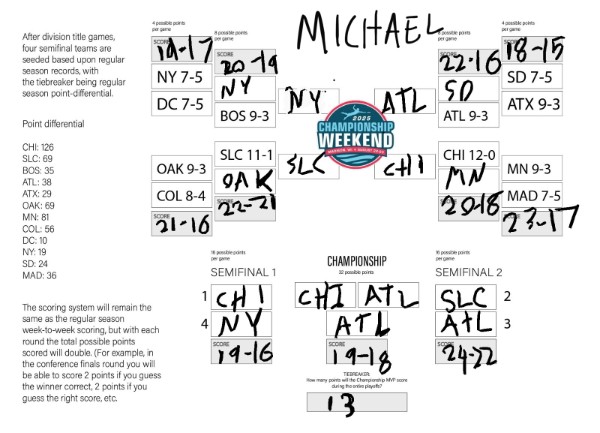 MICHAEL
After division title games,
four semifinal teams are
seeded based upon regular
season records, with
the tiebreaker being regular
season point-differential.
Point differential
CHI: 126
SLC: 69
BOS: 35
ATL: 38
ATX: 29
OAK: 69
MN: 81
COL: 56
DC: 10
NY: 19
SD: 24
MAD: 36
The scoring system will remain
the same as the regular season
week-to-week scoring, but with each
round the total possible points
scored will double. (For example, in
the conference finals round you will
be able to score 2 points if you guess
the winner correct, 2 points if you
guess the right score, etc.
4 possible points
per game
SCORE
19-17
NY 7-5
DC 7-5
8 possible points
per game
SCORE
20-19
NY
BOS 9-3
NY
OAK 9-3
COL 8-4
SCORE
21-16
SLC 11-1
OAK
SCORE
22-21
SLC
2025
CHAMPIONSHIP
WEEKEND
ATL
8 possible points
per game
SCORE
22-16
SD
ATL 9-3
4 possible points
per game
SCORE
18-15
SD 7-5
ATX 9-3
CHI
CHI 12-0
MN
SCORE
20-18
MN 9-3
MAD 7-5
SCORE
23-17
16 possible points
per game
SEMIFINAL 1
1 CHI
4 NY
SCORE
19-16
CHAMPIONSHIP
32 possible points
CHI ATL
ATL
SCORE
19-18
16 possible points
per game
SEMIFINAL 2
SLC 2
ATL 3
SCORE
24-22
TIEBREAKER:
How many points will the Championship MVP score
during the entire playoffs?
13